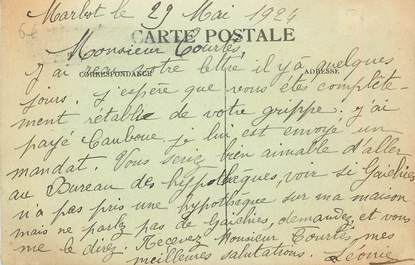 Marbot le 29 Mai 1924
CARTE POSTALE
Monsieur Tourlès,
J'ai reçu votre lettre il y a quelques
CORRESPONDANCE ADRESSE
jours. j'espère que vous êtes complète-
ment rétablie de votre grippe. j'ai
payé Cauboue je lui est envoyé un
mandat. Vous seriez bien aimable d'aller
au Bureau des hypothèques, voir si Gaichies
n'a pas pris une hypothèque sur ma maison
mais ne parlez pas de Gaichies, demandez, et vous
me le direz. Recevez Monsieur Tourlès, mes
meilleures salutations. Léonie